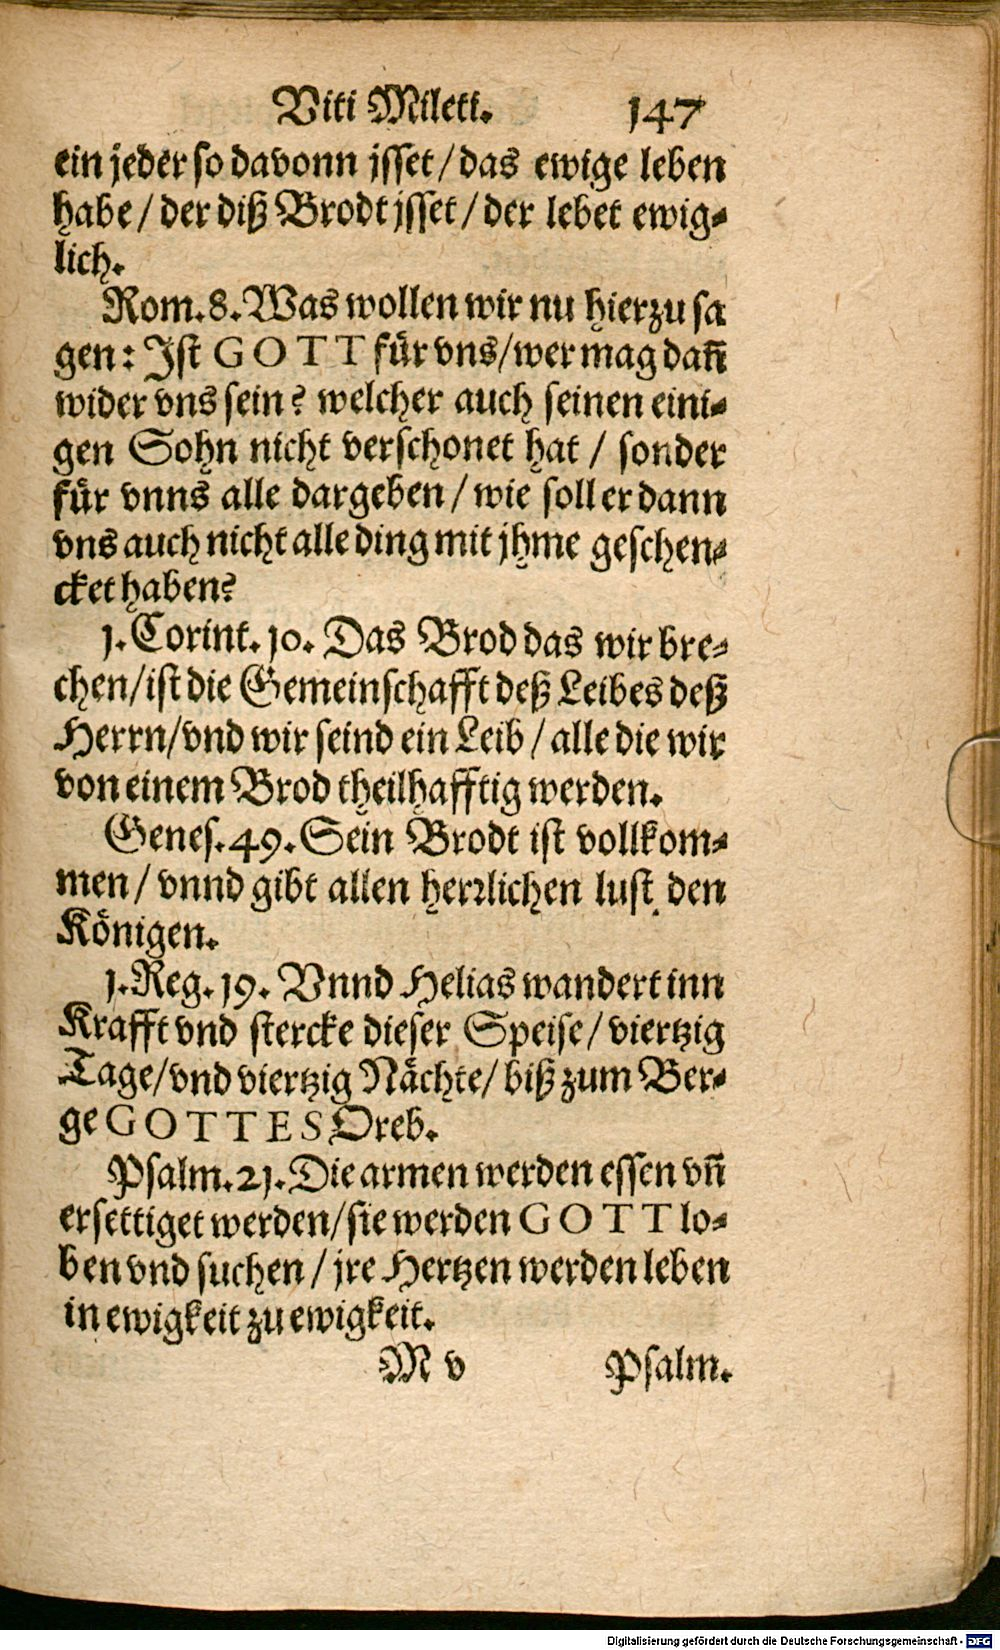 Viti Mileti. 147
ein jeder so davonn jsset / das ewige leben
habe / der diß Brodt jsset / der lebet ewig⸗
lich.
Rom. 8. Was wollen wir nu hierzu sa
gen: Jst GOTT für vns / wer mag dañ
wider vns sein? welcher auch seinen eini⸗
gen Sohn nicht verschonet hat / sonder
für vnns alle dargeben / wie soll er dann
vns auch nicht alle ding mit jhme geschen⸗
cket haben?
1. Corint. 10. Das Brod das wir bre⸗
chen / ist die Gemeinschafft deß Leibes deß
Herrn / vnd wir seind ein Leib / alle die wir
von einem Brod theilhafftig werden.
Genes. 49. Sein Brodt ist vollkom⸗
men / vnnd gibt allen herrlichen lust den
Königen.
1. Reg. 19. Vnnd Helias wandert inn
Krafft vnd stercke dieser Speise / viertzig
Tage / vnd viertzig Nächte / biß zum Ber⸗
ge GOTTES Oreb.
Psalm. 21. Die armen werden essen vñ
ersettiget werden / sie werden GOTT lo⸗
ben vnd suchen / jre Hertzen werden leben
in ewigkeit zu ewigkeit.
M v Psalm.
Digitalisierung gefördert durch die Deutsche Forschungsgemeinschaft - DFG